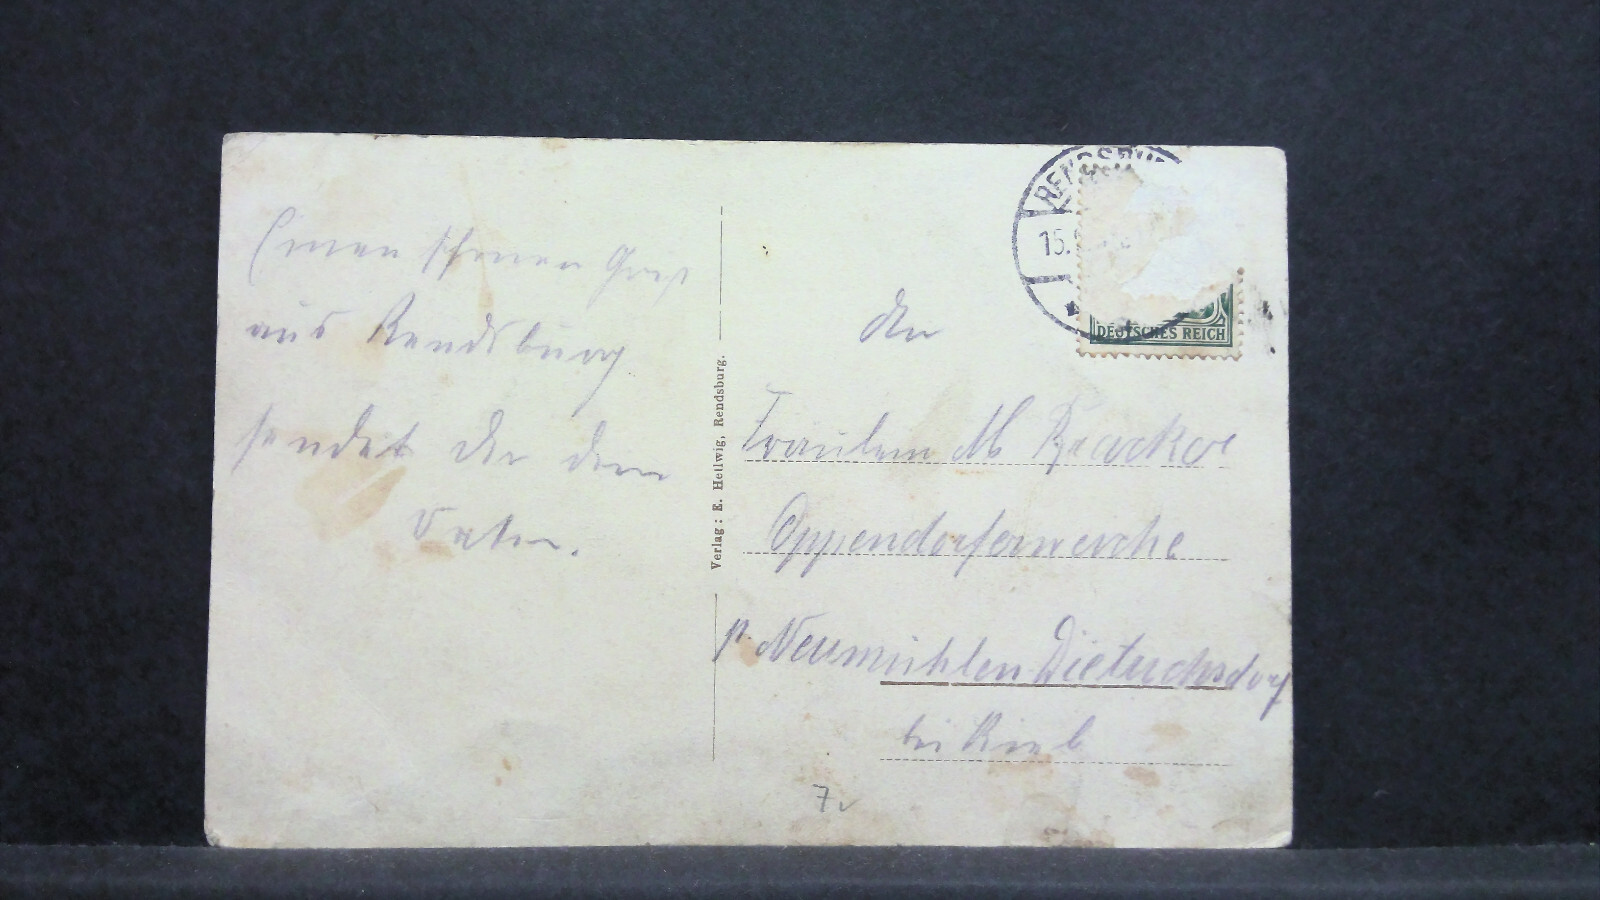 Einen schönen Gruß
aus Rendsburg
sendet Dir dein
Vater.
Verlag: E. Hellwig, Rendsburg.
RENDSBU
15.
DEUTSCHES REICH
An
Fräulein M
Oppendorferweiche
p. Neumühlen Dietrichsdorf
bei Kiel
7